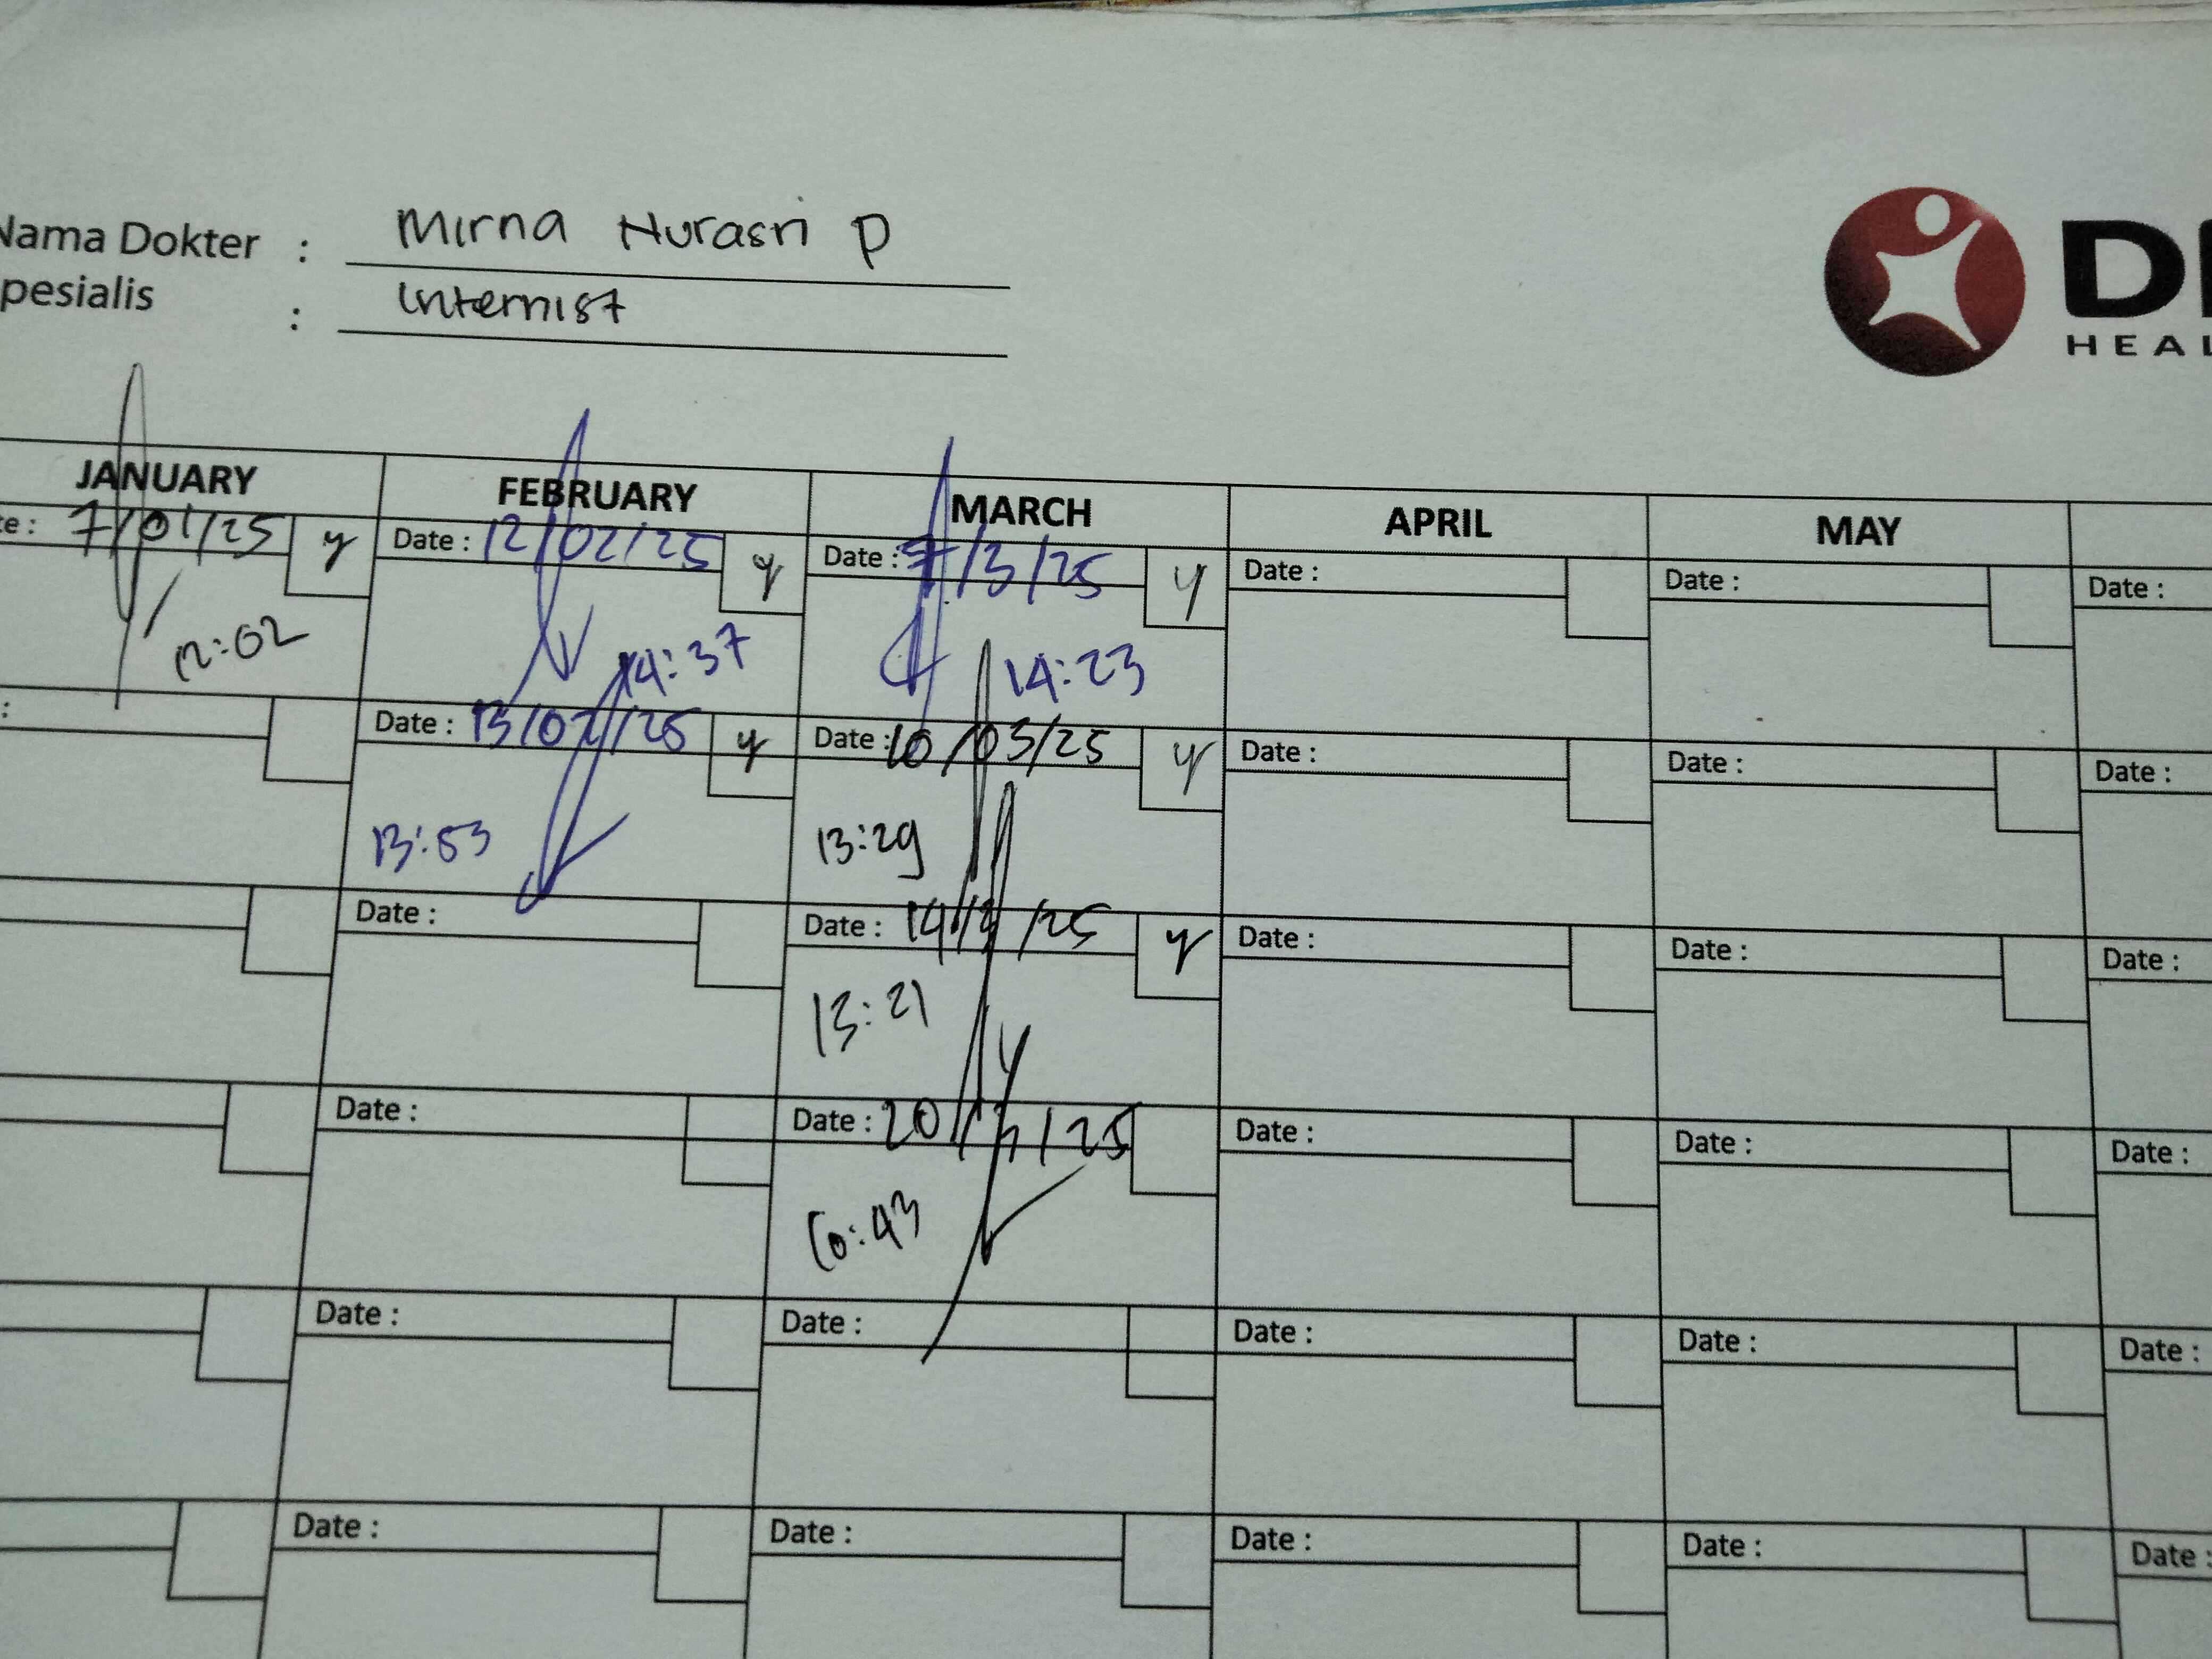 Nama Dokter : Mirna Nurasri P
pesialis : Internist
HEAL
JANUARY FEBRUARY MARCH APRIL MAY
te : 7/01/25 y Date : 12/02/25 y Date : 7/3/25 y Date : Date : Date :
12:02 14:37 14:23
: Date : 13/02/25 y Date : 10/03/25 y Date : Date : Date :
13:53 13:29
Date : Date : 14/3/25 y Date : Date : Date :
13:21
Date : Date : 20/3/25 Date : Date : Date :
Date : Date : Date : Date : Date :
Date : Date : Date : Date : Date :